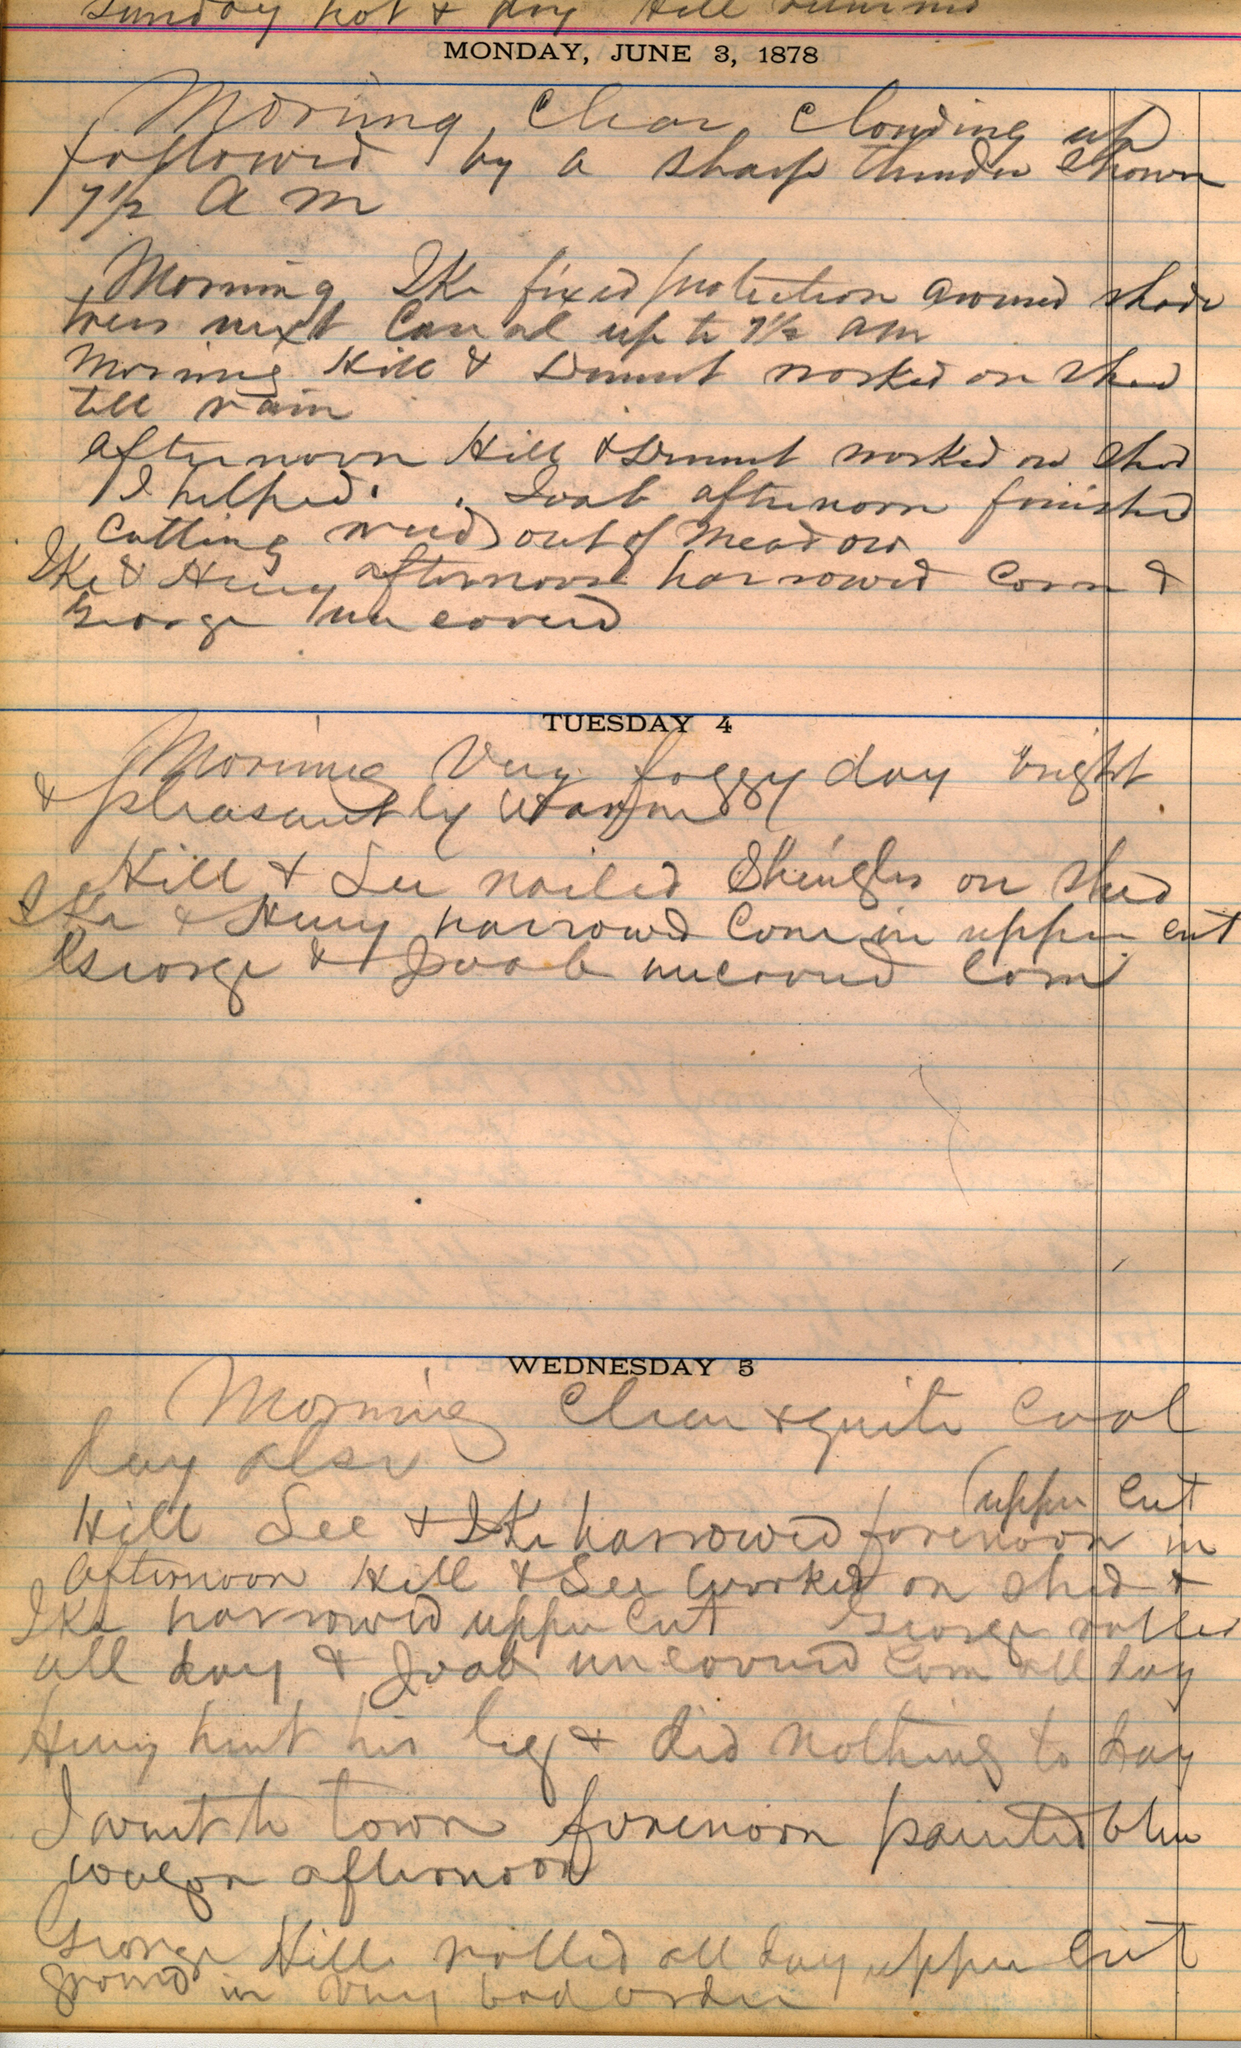 Sunday hot & dry Hill returned
MONDAY, JUNE 3, 1878
Morning Clear Clouding up
followed by a sharp thunder shower
7½ A M
Morning Ike fixed protection around shade
trees next Canal up to 7½ am
Morning Hill & worked on shed
till rain
afternoon Hill & worked on shed
I helped. Joab afternoon finished
Cutting weeds out of meadow
Ike & Henry afternoon harrowed Corn &
George uncovered
TUESDAY 4
Morning Very foggy day bright
& pleasantly warm
Hill & Lee nailed Shingles on shed
Ike & Henry harrowed Corn in upper cut
George & Joab uncovered Corn
WEDNESDAY 5
Morning Clear & quite Cool
day also
(upper Cut
Hill Lee & Ike harrowed forenoon in
afternoon Hill & Lee worked on shed &
Ike harrowed upper Cut George rolled
all day & Joab uncovered Corn all day
Henry hurt his leg & did nothing to day
I went to town forenoon painted blue
wagon afternoon
George Hill rolled all day upper Cut
ground in very bad order